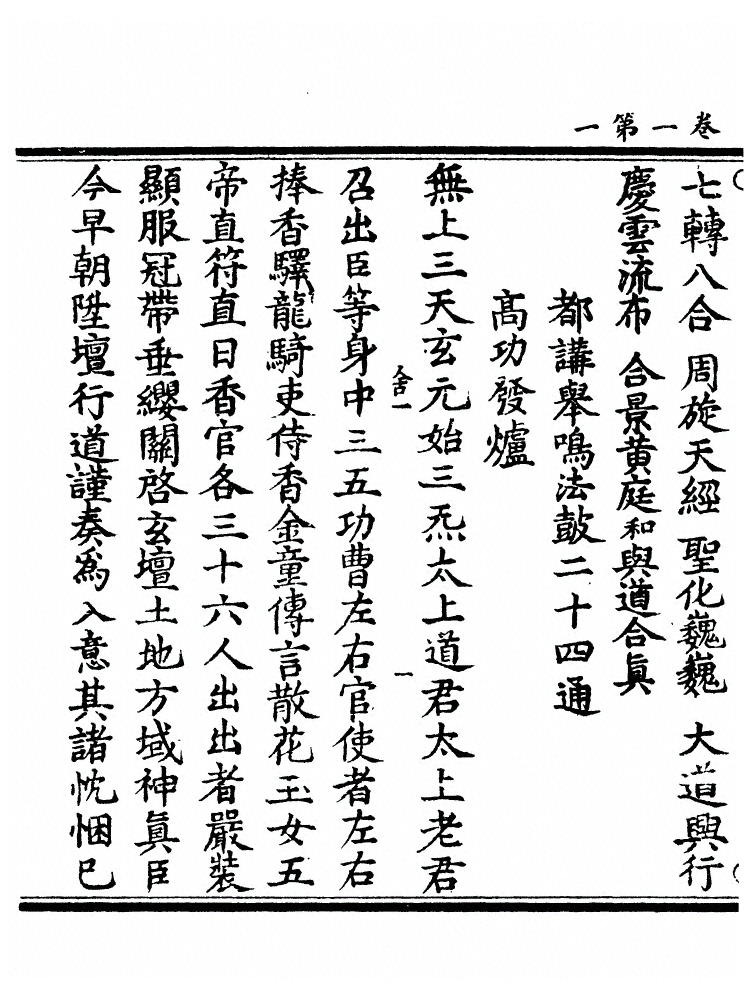 卷一第一
七轉八合 周旋天經 聖化巍巍 大道興行
慶雲流布 合景黃庭 和 與道合眞
都講舉鳴法鼓二十四通
高功發爐
無上三天玄元始三炁太上道君太上老君
舍一 一
召出臣等身中三五功曹左右官使者左右
捧香驛龍騎吏侍香金童傳言散花玉女五
帝直符直日香官各三十六人出出者嚴裝
顯服冠帶垂纓關啓玄壇土地方域神眞臣
今早朝陞壇行道謹奏爲入意其諸忱悃已